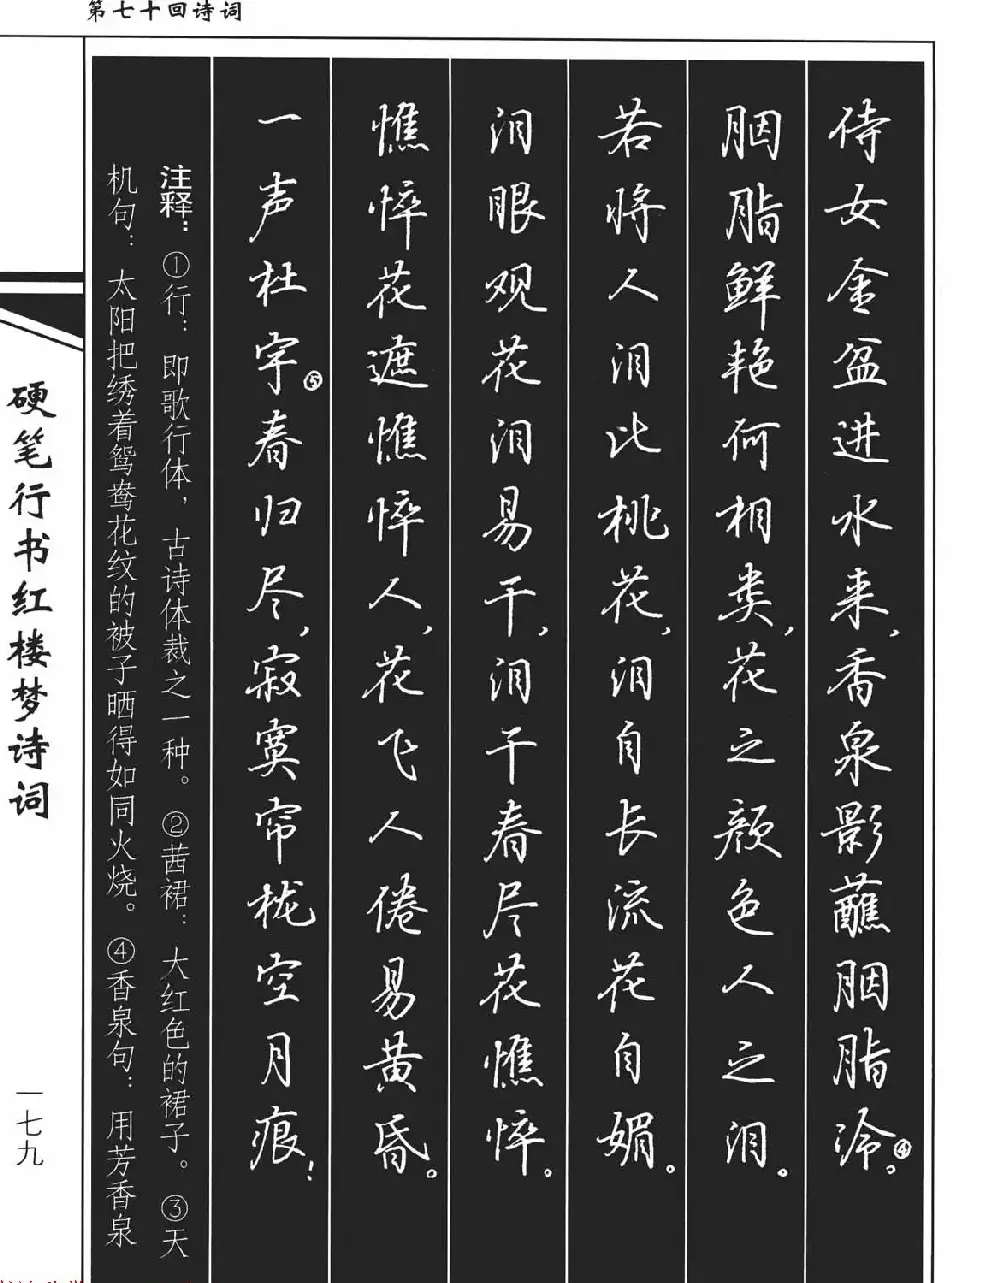 第七十回诗词
侍女金盆进水来，香泉影蘸胭脂冷④。
胭脂鲜艳何相类，花之颜色人之泪。
若将人泪比桃花，泪自长流花自媚。
泪眼观花泪易干，泪干春尽花憔悴。
憔悴花遮憔悴人，花飞人倦易黄昏。
一声杜宇⑤春归尽，寂寞帘栊空月痕！
注释：①行：即歌行体，古诗体裁之一种。②茜裙：大红色的裙子。③天
机句：太阳把绣着鸳鸯花纹的被子晒得如同火烧。④香泉句：用芳香泉
硬笔行书红楼梦诗词
一七九